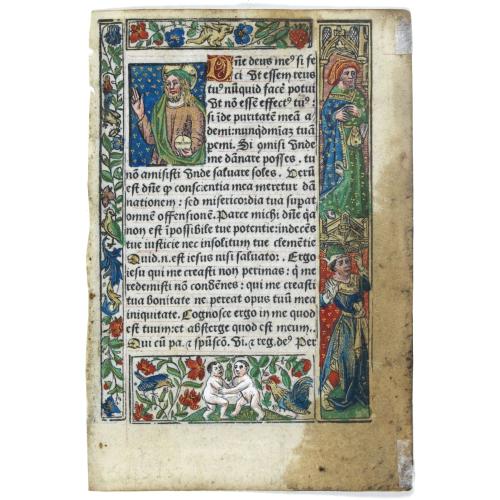 Dñe deus me⁹ si fe
ci Vt essem reus
tu⁹ nũquid facẽ potui
Vt nõ essẽ effect⁹ tu⁹:
si ide puritatẽ meã a
demi: nunqd
pemi. Si qmisi Vnde
me dãnare posses. tu
nõ amisisti Vnde saluare soles. Verũ
est dñe qp consciẽtia mea meretur dã
nationem: sed misericordia tua supat
omnẽ offensionẽ. Parce michi dñe qa
non est ĩpossibile tue potentie: indecẽs
tue iusticie nec insolitum tue clemẽtie
Quid. n. est iesus nisi saluato: . Ergo
iesu qui me creasti non perimas: q̃ me
redemisti nõ condẽnes: qui me creasti
tua bonitate ne pereat opus tuũ mea
iniquitate. Cognosce ergo in me quod
est tuum: et absterge quod est meum.
Qui cũ pa. ⁊ spũscõ. Vi. ⁊ reg. de⁹ Per